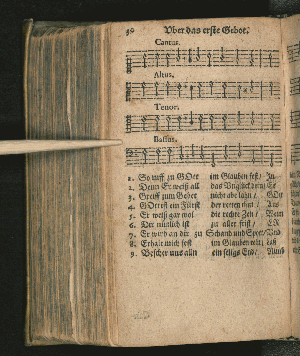 50 Vber das erste Gebot.
Cantus.
Altus.
Tenor.
Bassus.
1. So ruff zu GOtt im Glauben fest / In
2. Denn Er weiß all das Unglück dein / Er
3. Greiff zum Gebet nicht abelahn / GOtt
4. GOtt ist ein Fürst der
5. Er weiß gar wol die rechte Zeit / Wenn
6. Der nützlich ist zu aller frist / ER
7. Er wird an dir zu Schand und Spot / Und
8. Erhalt mich fest im Glauben
9. Bescher uns alln ein seligs Ende /